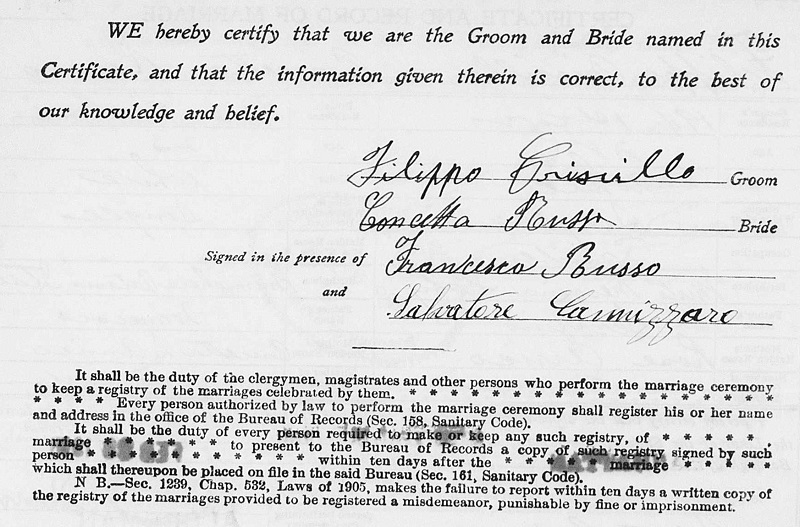 WE hereby certify that we are the Groom and Bride named in this
Certificate, and that the information given therein is correct, to the best of
our knowledge and belief.
Filippo Crisiullo Groom
Concetta Russo Bride
Signed in the presence of Francesco Russo
and Salvatore Cannizzaro
It shall be the duty of the clergymen, magistrates and other persons who perform the marriage ceremony
to keep a registry of the marriages celebrated by them. * * * * * * * * * * * * * * *
* * * * Every person authorized by law to perform the marriage ceremony shall register his or her name
and address in the office of the Bureau of Records (Sec. 158, Sanitary Code).
It shall be the duty of every person required to make or keep any such registry, of * * * * * ,
marriage * * * * * * * to present to the Bureau of Records a copy of such registry signed by such
person * * * * * * * * * within ten days after the * * marriage * * * * *
which shall thereupon be placed on file in the said Bureau (Sec. 161, Sanitary Code).
N B.—Sec. 1239, Chap. 532, Laws of 1905, makes the failure to report within ten days a written copy of
the registry of the marriages provided to be registered a misdemeanor, punishable by fine or imprisonment.